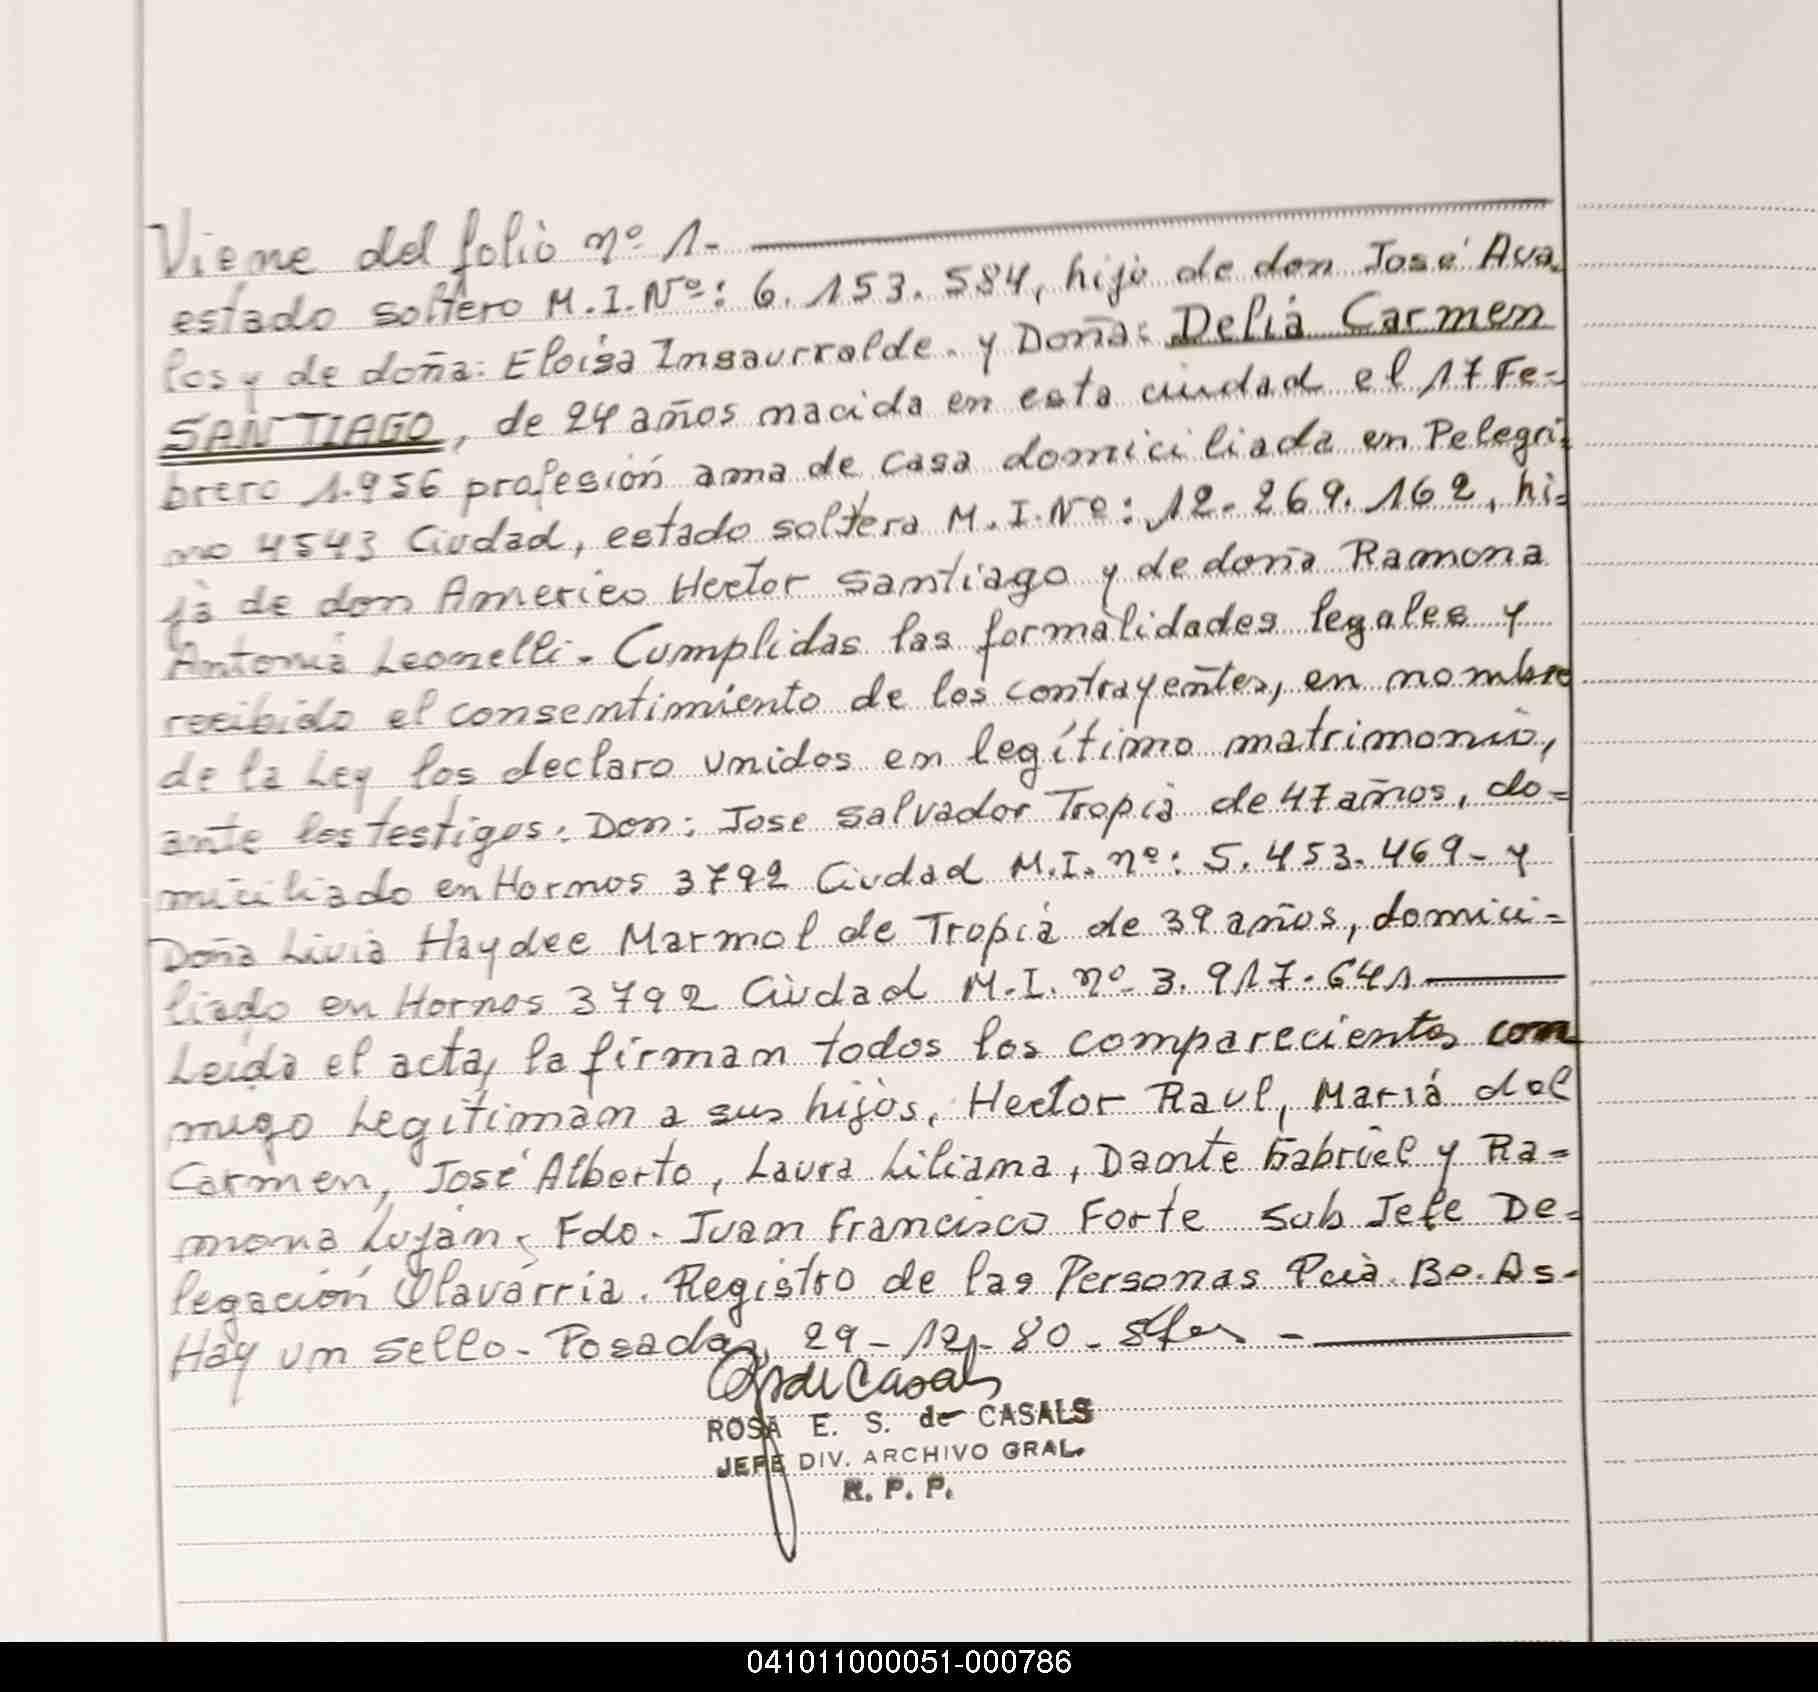 Viene del folio nº 1.
estado soltero M.I.Nº: 6.153.584, hijo de don José Ava
los y de doña: Eloisa Insaurralde. y Doña: Delia Carmen
SANTIAGO, de 24 años nacida en esta ciudad el 17 Fe-
brero 1.956 profesión ama de casa domiciliada en Pelegri-
no 4543 Ciudad, estado soltera M.I.Nº: 12.269.162, hi-
ja de don Americo Hector Santiago y de doña Ramona
Antonia Leonelli. Cumplidas las formalidades legales y
recibido el consentimiento de los contrayentes, en nombre
de la Ley los declaro unidos en legítimo matrimonio,
ante los testigos: Don: Jose Salvador Tropia de 47 años, do-
miciliado en Hornos 3792 Ciudad M.I. nº: 5.453.469- y
Doña Livia Haydee Marmol de Tropia de 39 años, domici-
liado en Hornos 3792 Ciudad M.I. nº 3.917.641
Leída el acta, la firman todos los comparecientes con
migo Legitiman a sus hijos, Hector Raul, María del
Carmen, José Alberto, Laura Liliana, Dante Gabriel y Ra-
mona Luján, Fdo. Juan Francisco Forte Sub Jefe De-
legación Olavarria. Registro de las Personas Pcia. Bo. As.
Hay un sello- Posadas, 29-12-80-
ROSA E. S. de CASALS
JEFE DIV. ARCHIVO GRAL.
R. P. P.
041011000051-000786